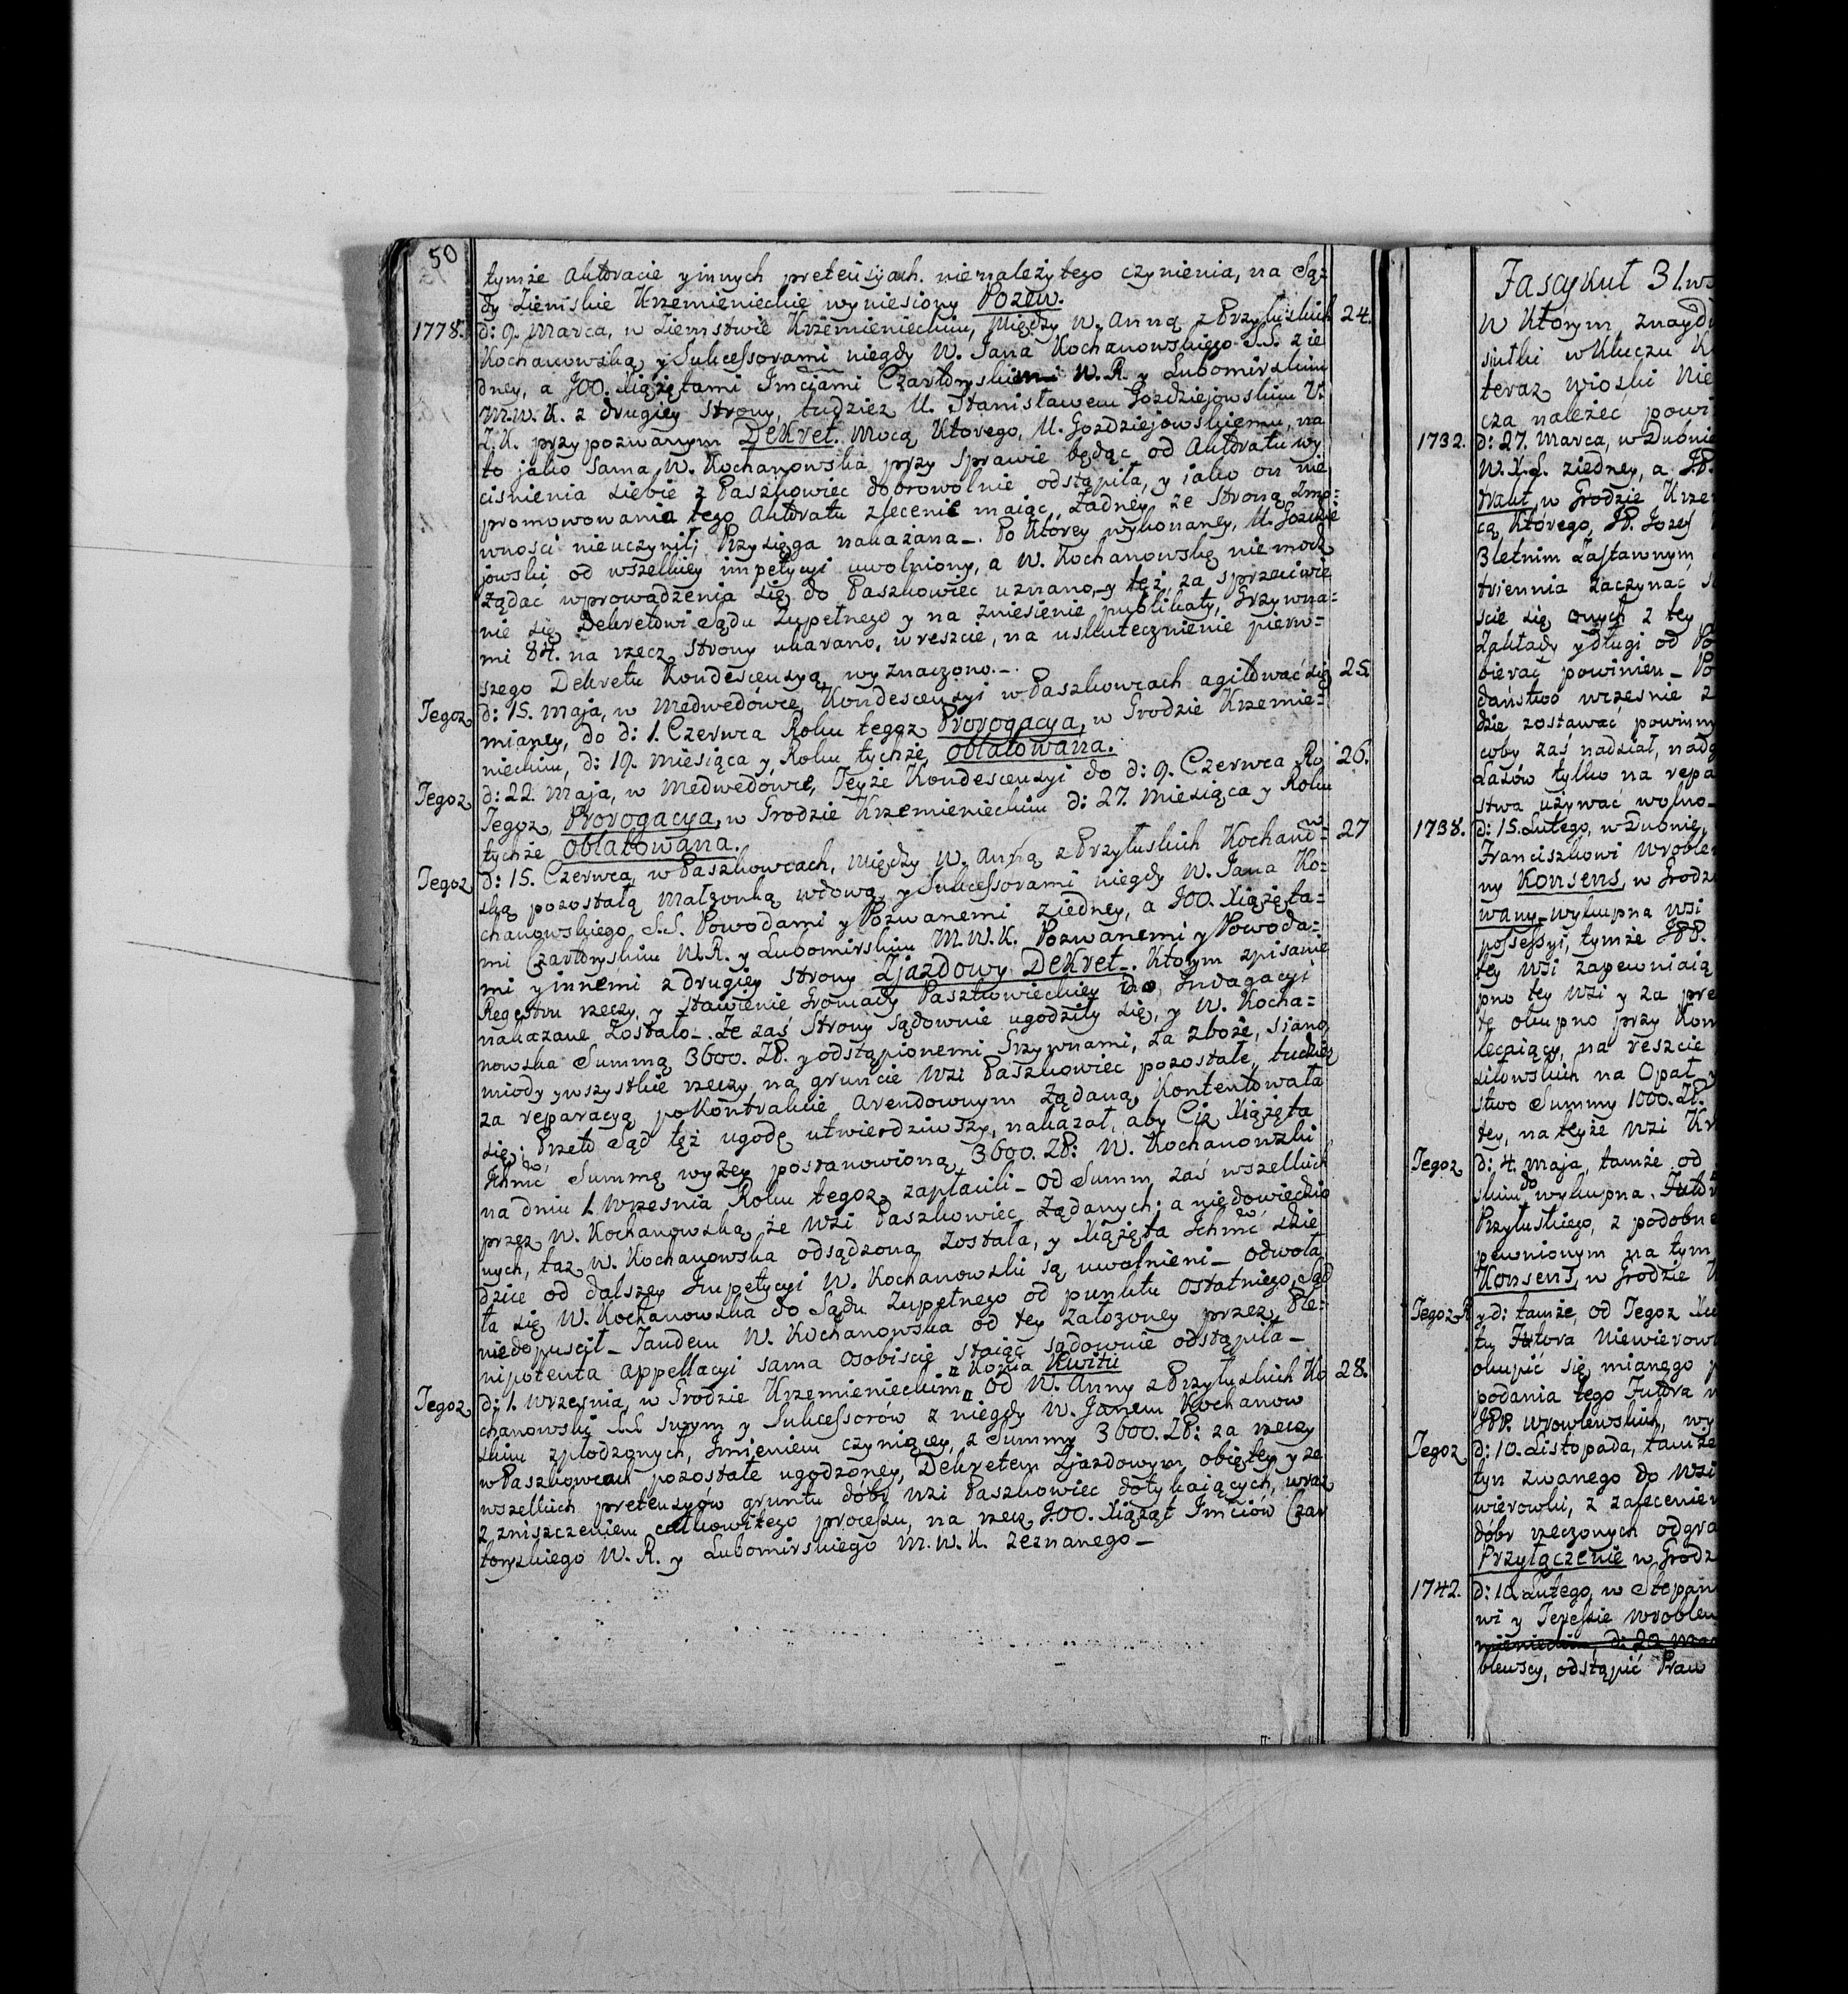 50
tymże Aktoracie y innych pretensyach nienależytego czynienia, na Są-
dy Ziemskie Krzemienieckie wyniesiony Pozew.
1778. d: 9. Marca, w Ziemstwie Krzemienieckim, między W. Anną z Przyłuskich 24.
Kochanowską y Sukcessorami niegdy W. Jana Kochanowskiego S.S. z ie
dney, a JOO. Xiążętami Imciami Czartoryskiemi W.R. y Lubomirskim
M.W.K. z drugiey strony, tudziez U. Stanisławem Gozdziejowskim V.
Z.K. przypozwanym Dekret. Mocą Ktorego, U. Gozdziejowskiemu, na
to jako sama W. Kochanowska przy sprawie będąc od Aktoratu wy
ciśnienia siebie z Paszkowiec dobrowolnie odstąpiła, y iako on nie
promowowania tego Aktoratu zlecenie maiąc, Żadney ze stroną Zmo-
wności nieuczynił; Przysięga nakazana_. Po Ktorey wykonaney, U. Gozdzie
jowski od wszelkiey impetycyi uwolniony, a W. Kochanowskę niemodz
żądać wprowadzenia się do Paszkowiec uznano, y też, za sprzeciwie
nie się Dekretowi Sądu Zupełnego y na zniesienie publikaty, Grzywna-
mi 84. na rzecz strony ukarano, wreszcie, na uskutecznienie pierw-
szego Dekretu Kondescensyą wyznaczono._
Tegoz d: 15. Maja, w Medwedówce, Kondescensyi w Paszkowcach agitować się 25
mianey, do d: 1. Czerwca Roku tegoz Prorogacya, w Grodzie Krzemie-
nieckim, d: 19. miesiąca y Roku tychże oblatowana.
Tegoz d: 22. Maja, w Medwedówce, Teyże Kondescensyi do d: 9. Czerwca Ro 26.
Tegoz, Prorogacya, w Grodzie Krzemienieckim d: 27. Miesiąca y Roku
tychże oblatowana.
Tegoz d: 15. Czerwca, w Paszkowcach, między W. Anną z Przyłuskich Kochanow- 27
ską pozostałą Małżonką wdową, y Sukcessorami niegdy W. Jana Ko-
chanowskiego S.S. Powodami y Pozwanemi ziedney, a JOO. Xiążęta-
mi Czartoryskim W.R. y Lubomirskim M.W.K. Pozwanemi y Powoda-
mi y innemi z drugiey strony Zjazdowy Dekret_. Ktorym zpisanie
Regestru rzeczy, y stawienie Gromady Paszkowieckiey do Indagacyi
nakazane Zostało_. Ze zaś Strony Sądownie ugodziły się, y W. Kocha-
nowska Summą 3600. ZP. y odstąpionemi Grzywnami, za zboże, siano,
miody y wszystkie rzeczy na gruncie Wsi Paszkowiec pozostałe, tudziez
za reparacyą po Kontrakcie Arendownym żądaną, Kontentowała
się; Przeto Sąd też ugodę utwierdziwszy, nakazał, aby Ciż Xiążęta
Ichmć Summę wyżey postanowioną 3600. ZP: W. Kochanowski
na dniu 1. Wrzesnia Roku tegoz zapłacili_ od Summ zaś wszelkich
przez W. Kochanowską, ze Wsi Paszkowiec żądanych; a niedowiedzio
nych, taz W. Kochanowska odsądzona została, y Xiążęta Ichmć dzie
dzice od dalszey Impetycyi W. Kochanowski są uwolnieni_ odwoła
ła się W. Kochanowska do Sądu Zupełnego od punktu ostatniego, Sąd
niedopuscił_ Tandem W. Kochanowska od tey założoney przez Ple-
nipotenta appellacyi sama osobiscie staiąc sądownie odstąpiła_
Kopia Kwitu
Tegoz d: 1. Wrzesnia, w Grodzie Krzemienieckim od W. Anny z Przyłuskich Ko 28.
chanowski S.S. swym y Sukcessorów z niegdy W. Janem Kochanow
skim zpłodzonych, Imieniem czyniącey, z Summy 3600. ZP: za rzeczy
w Paszkowcach pozostałe ugodzoney, Dekretem Zjazdowym obiętey y ze
wszelkich pretensyów gruntu dóbr Wsi Paszkowiec dotykaiących, wraz
z zniszczeniem całkowitego processu, na rzecz JOO. Xiążąt Imciów Czar
toryskiego W.R. y Lubomirskiego M.W.K. zeznanego_
Fascykuł 31.
W Ktorym znayd
siułki w Kluczu K
teraz wioski Nie
cza należeć powi
1732. d: 27. Marca, w Dubnie
W.X.L. ziedney, a JP.
w Grodzie Krze
cą Którego, JP. Jozef
3letnim Zastawnym
triennia Zaczynać
scie się onych z tey
Zakłady y długi od Po
bierać powinien_ Po
daństwo wczesnie z
dzie zostawać powinny
coby zaś nadział, nad
Lasów tylko na repa
stwa używać wolno_
1738. d: 15. Lutego, w Dubnie,
Franciszkowi Wroble
ny Konsens, w Grodz
wany_ wykupna Wsi
possessyi, tymże JPP.
tey Wsi zapewniaią
pno tey Wsi y za pre
tę okupno przy Kon
lecaiący, na reszcie
sitowskich na Opał y
stwo Summy 1000. ZP.
tey, na teyże Wsi Kr
Tegoz d: 4. Maja, tamże od
skim do wykupna Futor
Przyłuskiego, z podobne
pewnionym na tym
Konsens, w Grodzie K
Tegoz R. y d: tamże, od Tegoz Xię
ty Futora Niewierow
okupić się mianego p
podania tego Futora
JPP. Wrowlewskich, wy
Tegoz d: 10. Listopada, tamże
tyn zwanego do Wsi
wierowki, z zaleceniem
dóbr rzeczonych odgra
Przyłączenie w Grodz
1742. d: 10. Lutego, w Stepan
wi y Teressie Wroblew
mienieckim, d: 20 Mar
blewscy, odstąpić Praw